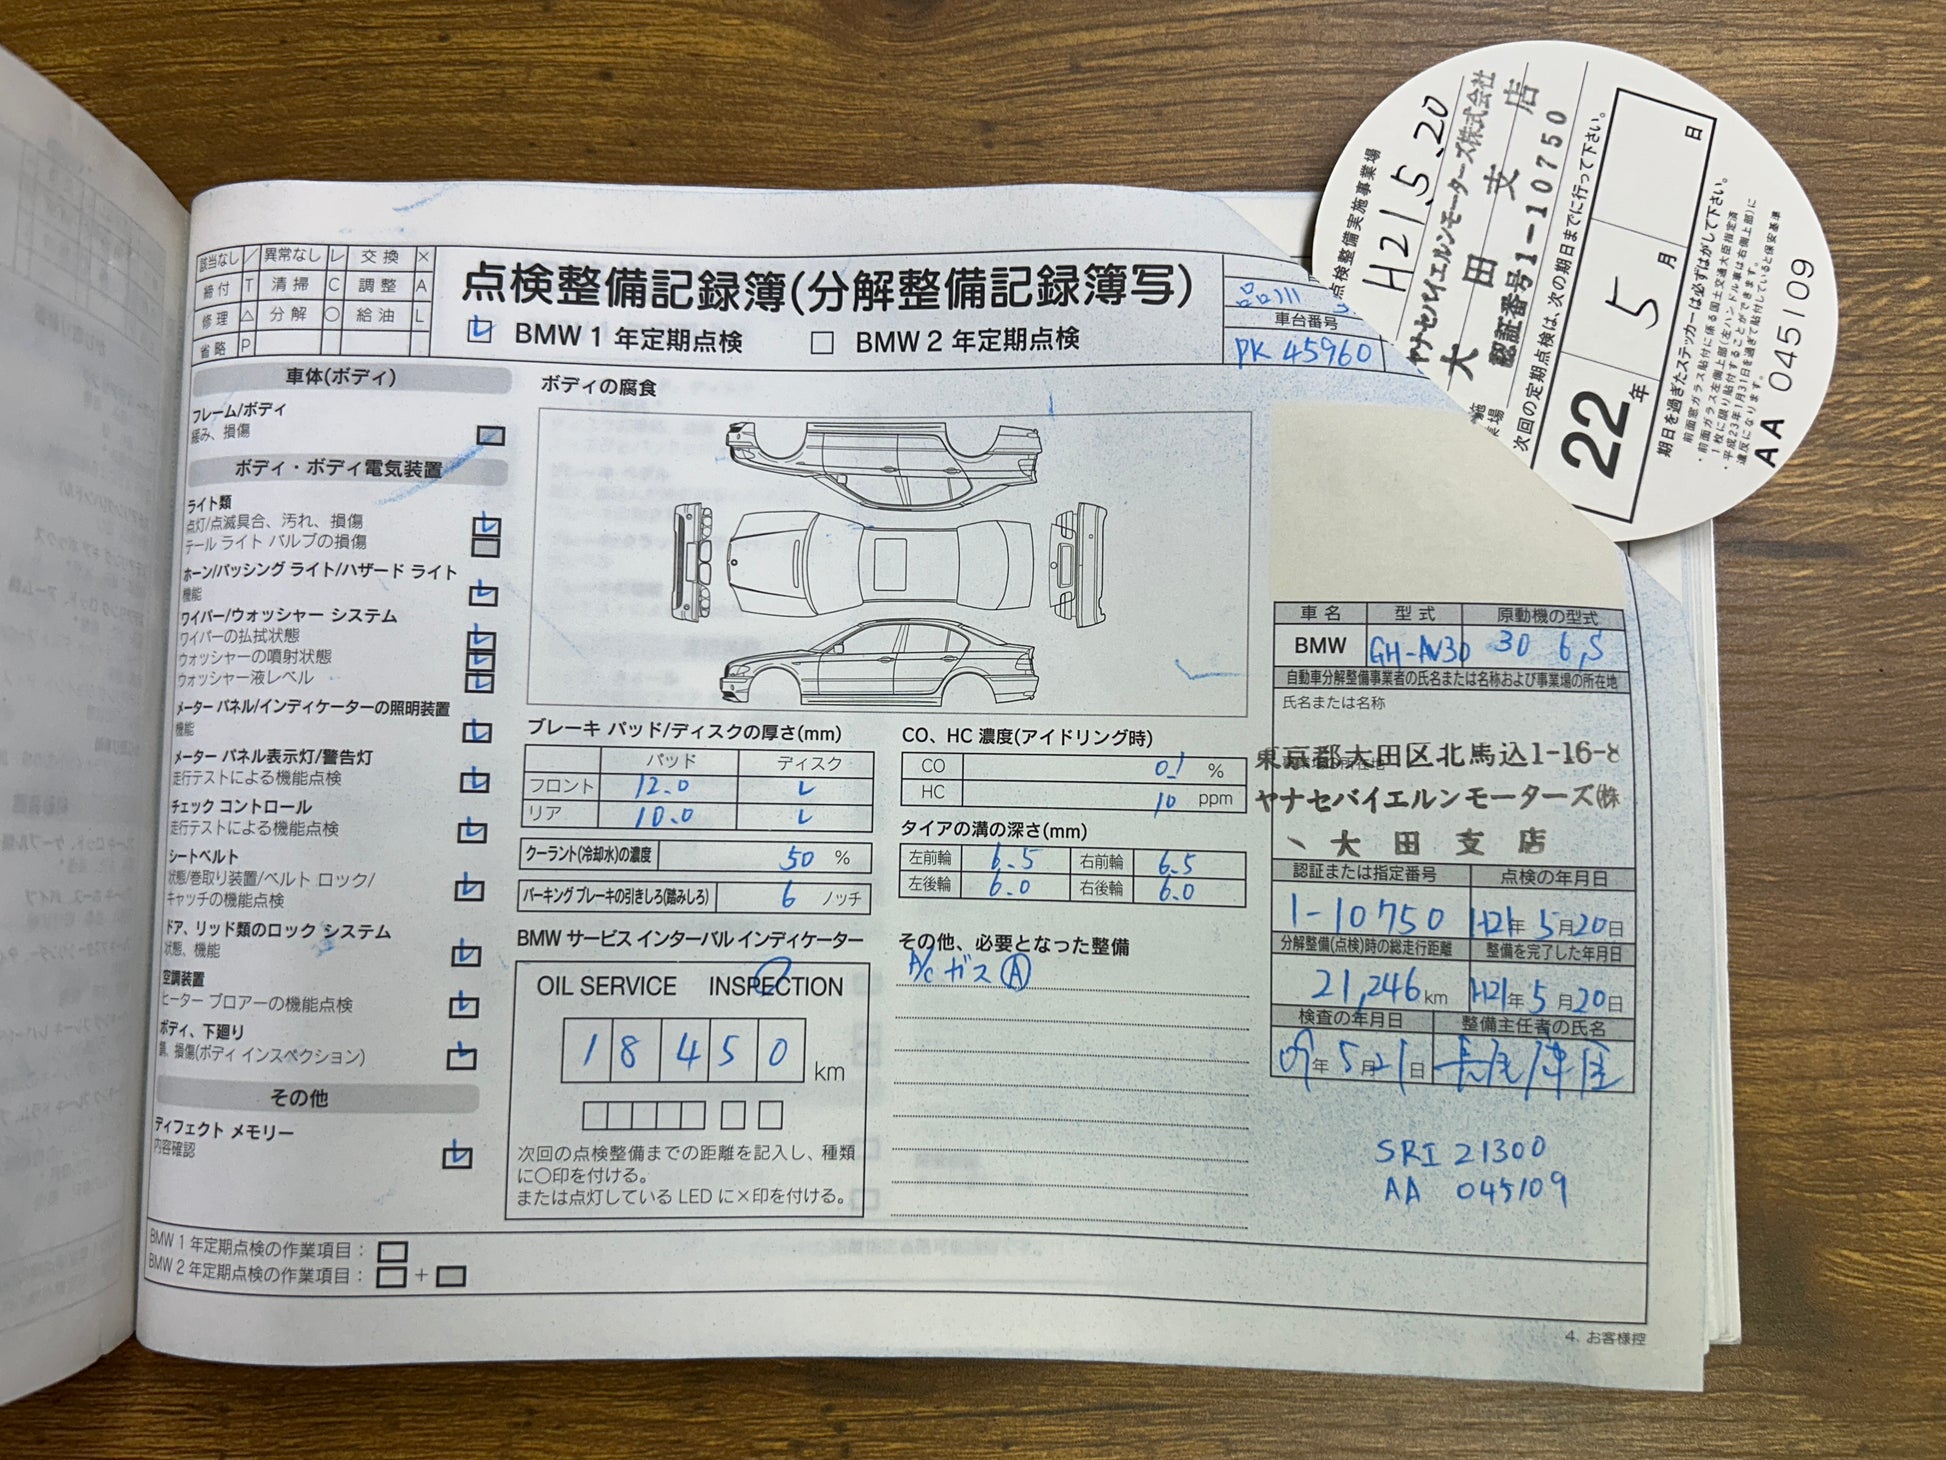 該当なし ／ 異常なし レ 交換 ×
締付 T 清掃 C 調整 A
修理 △ 分解 ○ 給油 L
省略 P
点検整備記録簿(分解整備記録簿写)
レ BMW 1 年定期点検 □ BMW 2 年定期点検
品川
車台番号
PK 45960
車体(ボディ)
フレーム/ボディ
緩み、損傷
ボディ・ボディ電気装置
ライト類
点灯/点滅具合、汚れ、損傷 レ
テール ライト バルブの損傷
ホーン/パッシング ライト/ハザード ライト
機能 レ
ワイパー/ウォッシャー システム
ワイパーの払拭状態 レ
ウォッシャーの噴射状態 レ
ウォッシャー液レベル レ
メーター パネル/インディケーターの照明装置
機能 レ
メーター パネル表示灯/警告灯
走行テストによる機能点検 レ
チェック コントロール
走行テストによる機能点検 レ
シートベルト
状態/巻取り装置/ベルト ロック/
キャッチの機能点検 レ
ドア、リッド類のロック システム
状態、機能 レ
空調装置
ヒーター ブロアーの機能点検 レ
ボディ、下廻り
錆、損傷(ボディ インスペクション) レ
その他
ディフェクト メモリー
内容確認 レ
ボディの腐食
ブレーキ パッド/ディスクの厚さ(mm)
パッド ディスク
フロント 12.0 レ
リア 10.0 レ
クーラント(冷却水)の濃度 50 %
パーキング ブレーキの引きしろ(踏みしろ) 6 ノッチ
BMW サービス インターバル インディケーター
OIL SERVICE INSPECTION
1 8 4 5 0 km
次回の点検整備までの距離を記入し、種類
に○印を付ける。
または点灯している LED に×印を付ける。
CO、HC 濃度(アイドリング時)
CO 0.1 %
HC 10 ppm
タイアの溝の深さ(mm)
左前輪 6.5 右前輪 6.5
左後輪 6.0 右後輪 6.0
その他、必要となった整備
A/C ガス Ⓐ
車名 型式 原動機の型式
BMW GH-AV30 30 6,S
自動車分解整備事業者の氏名または名称および事業場の所在地
氏名または名称
東京都大田区北馬込1-16-8
ヤナセバイエルンモーターズ(株
大田支店
認証または指定番号 点検の年月日
1-10750 H21年 5月20日
分解整備(点検)時の総走行距離 整備を完了した年月日
21,246 km H21年 5月20日
検査の年月日 整備主任者の氏名
09年 5月21日
SRI 21300
AA 045109
BMW 1 年定期点検の作業項目： □
BMW 2 年定期点検の作業項目： □ + □
4. お客様控
点検整備実施事業場
H21.5.20
ヤナセバイエルンモーターズ株式会社
大田支店
認証番号1-10750
次回の定期点検は、次の期日までに行って下さい。
22年 5月 日
期日を過ぎたステッカーは必ずはがして下さい。
・前面窓ガラス貼付に係る国土交通大臣指定済
・前面ガラス左側上部(左ハンドル車は右側上部)に
1枚に限り貼付することができます。
・平成23年1月31日を過ぎて貼付していると保安基準
違反になります。
AA 045109